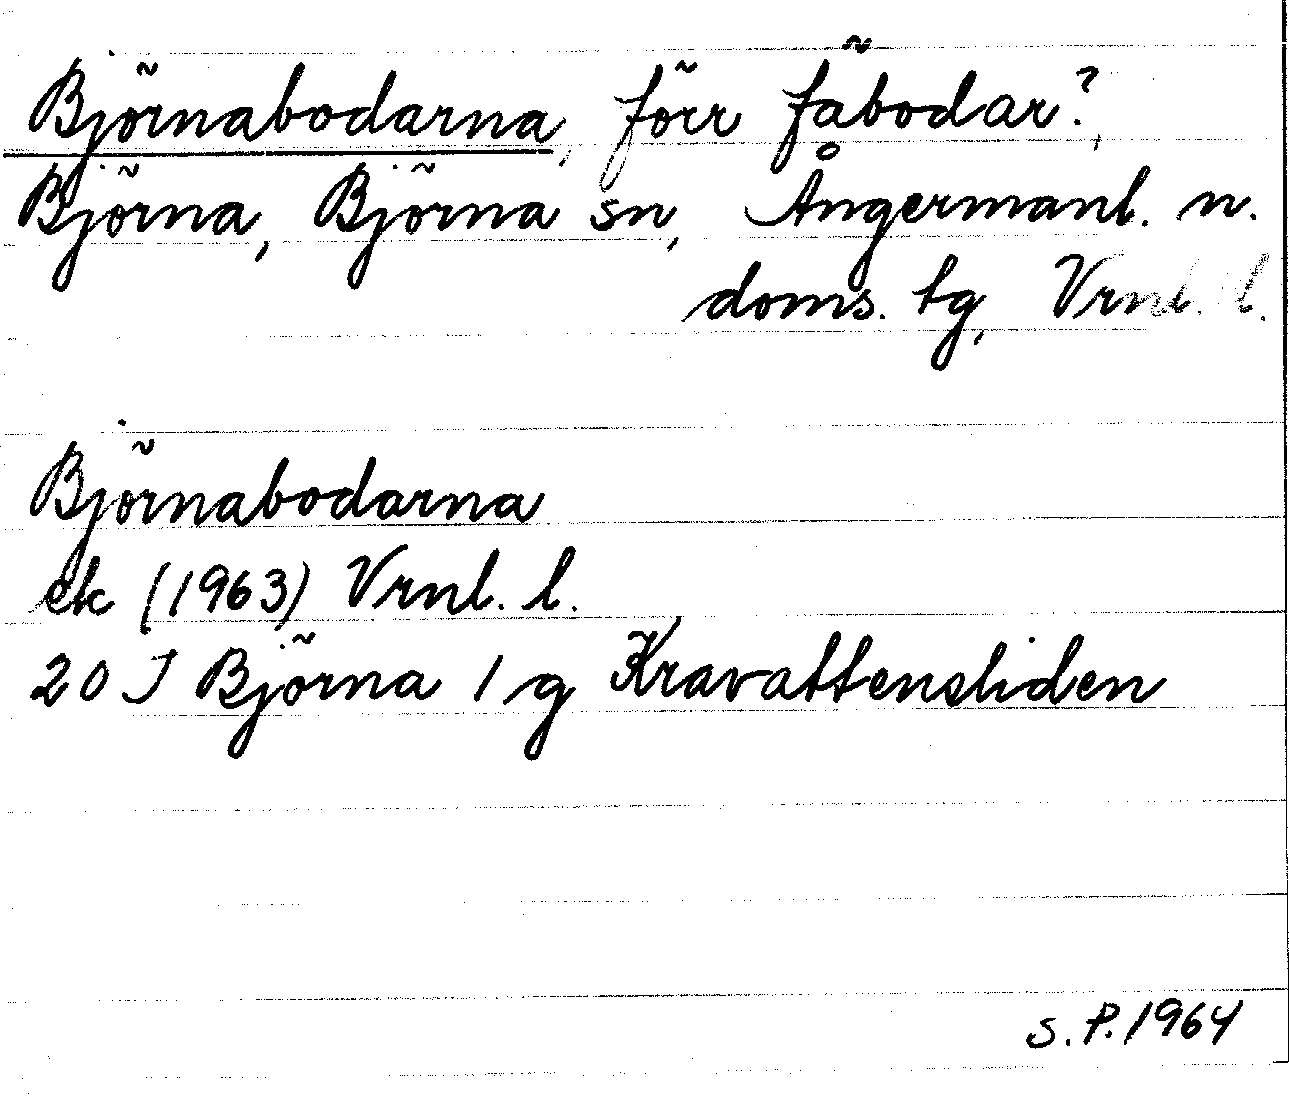 Björnabodarna, förr fäbodar?,
Björna, Björna sn, Ångermanl. n.
doms. tg, Vrnl. l.
Björnabodarna
ek (1963) Vrnl. l.
20 J Björna 1 g Kravattensliden
S.P. 1964